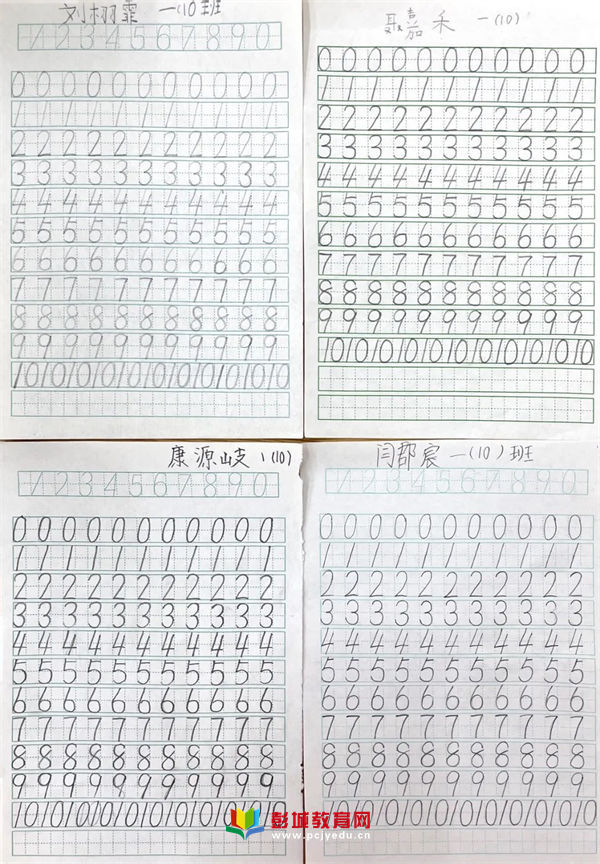 刘栩霏 一(10班
1234567890
0 0 0 0 0 0 0 0 0 0 0
1 1 1 1 1 1 1 1 1 1 1
2 2 2 2 2 2 2 2 2 2 2
3 3 3 3 3 3 3 3 3 3 3
4 4 4 4 4 4 4 4 4 4 4
5 5 5 5 5 5 5 5 5 5 5
6 6 6 6 6 6 6 6 6 6 6
7 7 7 7 7 7 7 7 7 7 7
8 8 8 8 8 8 8 8 8 8 8
9 9 9 9 9 9 9 9 9 9 9
10 10 10 10 10 10 10 10 10 10 10
嘉禾 一(10)
0 0 0 0 0 0 0 0 0 0 0
1 1 1 1 1 1 1 1 1 1 1
2 2 2 2 2 2 2 2 2 2 2
3 3 3 3 3 3 3 3 3 3 3
4 4 4 4 4 4 4 4 4 4 4
5 5 5 5 5 5 5 5 5 5 5
6 6 6 6 6 6 6 6 6 6 6
7 7 7 7 7 7 7 7 7 7 7
8 8 8 8 8 8 8 8 8 8 8
9 9 9 9 9 9 9 9 9 9 9
10 10 10 10 10 10 10 10 10 10 10
康源岐 1(10)
1234567890
0 0 0 0 0 0 0 0 0 0 0
1 1 1 1 1 1 1 1 1 1 1
2 2 2 2 2 2 2 2 2 2 2
3 3 3 3 3 3 3 3 3 3 3
4 4 4 4 4 4 4 4 4 4 4
5 5 5 5 5 5 5 5 5 5 5
6 6 6 6 6 6 6 6 6 6 6
7 7 7 7 7 7 7 7 7 7 7
8 8 8 8 8 8 8 8 8 8 8
9 9 9 9 9 9 9 9 9 9 9
10 10 10 10 10 10 10 10 10 10 10
闫郡宸 一(10)班
1234567890
0 0 0 0 0 0 0 0 0 0 0
1 1 1 1 1 1 1 1 1 1 1
2 2 2 2 2 2 2 2 2 2 2
3 3 3 3 3 3 3 3 3 3 3
4 4 4 4 4 4 4 4 4 4 4
5 5 5 5 5 5 5 5 5 5 5
6 6 6 6 6 6 6 6 6 6 6
7 7 7 7 7 7 7 7 7 7 7
8 8 8 8 8 8 8 8 8 8 8
9 9 9 9 9 9 9 9 9 9 9
10 10 10 10 10 10 10 10 10 10 10
彭城教育网
www.pcjyedu.cn